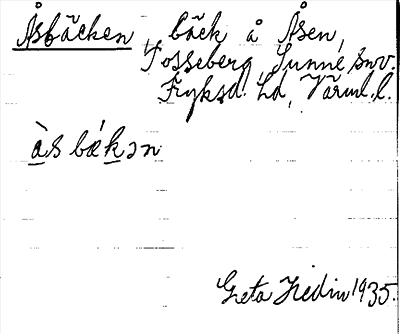 Åsbäcken, bäck å Åsen,
Tosseberg, Sunne snv.
Fryksd. hd, Värml. l.
às bǽkən
Greta Hedin 1935.